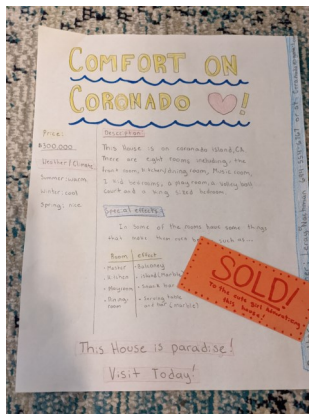 COMFORT ON
CORONADO !
Price:
$300,000
Weather/Climate
Summer: warm
Winter: cool
Spring: nice
Description
This house is on coronado island, CA.
There are eight rooms including, the
front room, kitchen/dining room, Music room,
1 kid bedrooms, a playroom, a volley ball
court and a king sized bedroom.
Special effects!
In some of the rooms have some things
that make them cute such as...
Room effect
Master • Balcony
Kitchen • island (marble)
Playroom • Snack bar
Dining room • Serving table
or bar (marble)
SOLD!
To the cute girl demonstrating
this house!
This House is paradise!
Visit Today!